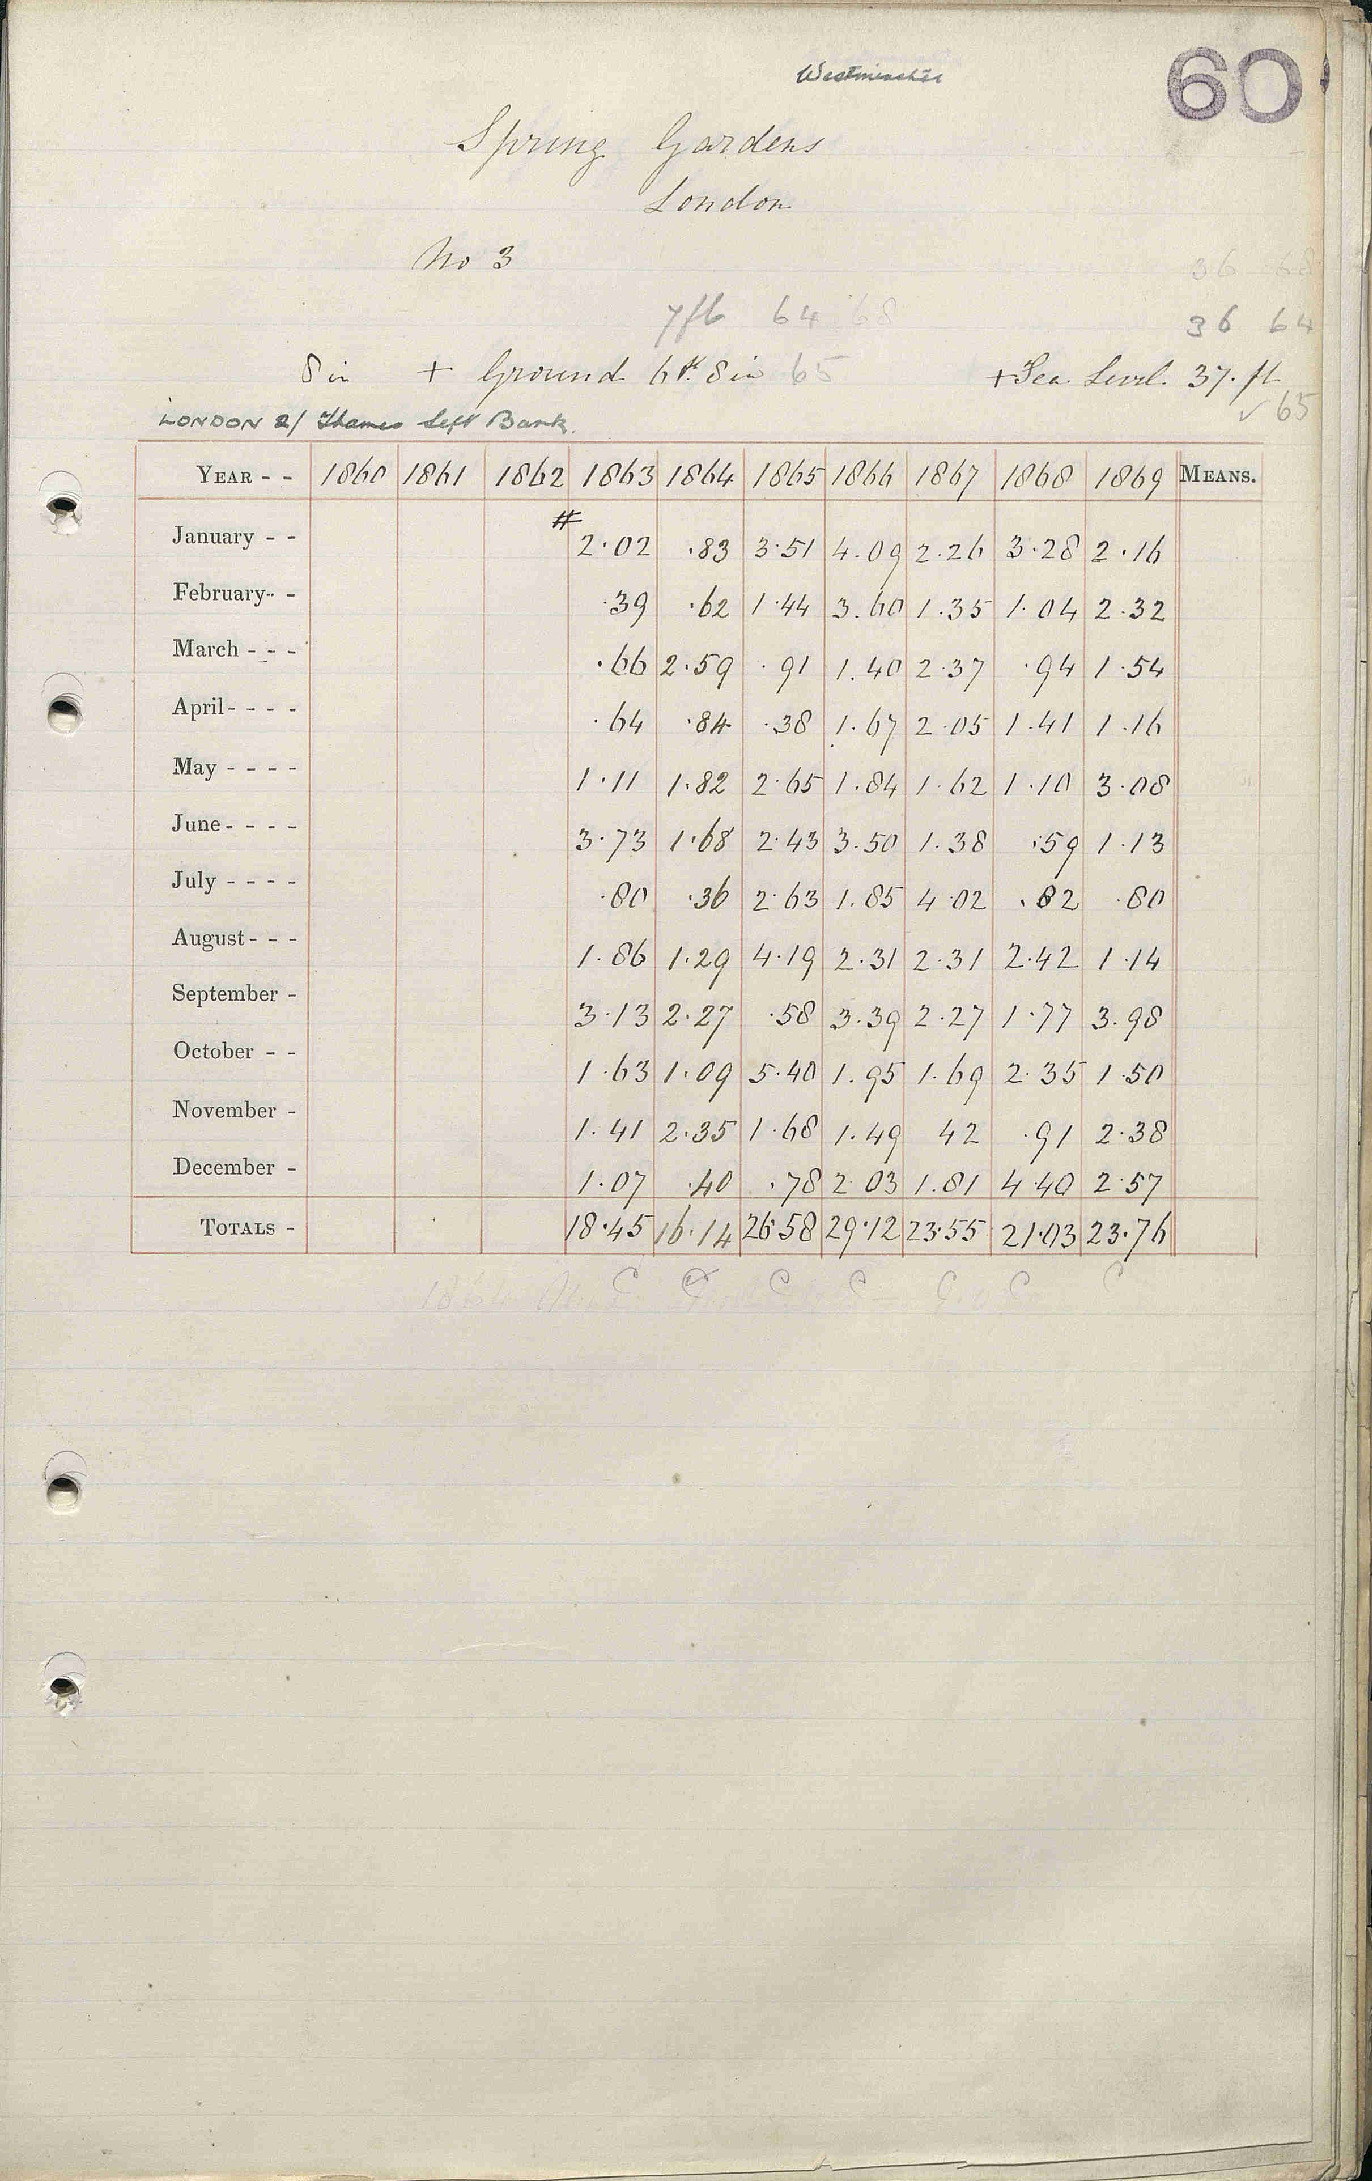 Westminster
60
Spring Gardens
London
No 3
36 68
7ft 64 68 36 64
8 in + Ground 6ft 8in 65 + Sea Level 37. ft
✓ 65
LONDON 2/ Thames Left Bank.
YEAR - - 1860 1861 1862 1863 1864 1865 1866 1867 1868 1869 MEANS.
January - - # 2.02 .83 3.51 4.09 2.26 3.28 2.16
February - - .39 .62 1.44 3.60 1.35 1.04 2.32
March - - - .66 2.59 .91 1.40 2.37 .94 1.54
April - - - - .64 .84 .38 1.67 2.05 1.41 1.16
May - - - - 1.11 1.82 2.65 1.84 1.62 1.10 3.08
June - - - - 3.73 1.68 2.43 3.50 1.38 .59 1.13
July - - - - .80 .36 2.63 1.85 4.02 .82 .80
August - - - 1.86 1.29 4.19 2.31 2.31 2.42 1.14
September - 3.13 2.27 .58 3.39 2.27 1.77 3.98
October - - 1.63 1.09 5.40 1.95 1.69 2.35 1.50
November - 1.41 2.35 1.68 1.49 42 .91 2.38
December - 1.07 .40 .78 2.03 1.81 4.40 2.57
TOTALS - 18.45 16.14 26.58 29.12 23.55 21.03 23.76
C C C C C C C